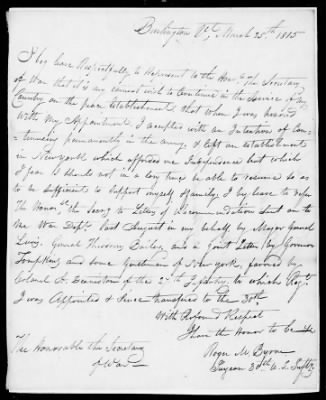 Burlington Vt, March 25th 1815
I beg leave Respectfully to Represent to the Honbl. The Secretary
of War that it is my earnest wish to Continue in the Service of my
Country on the peace Establishment that when I was honored
With my Appointment I accepted with an Intention of Con-
-tinueing permanently in the army & left an establishment
in New york which afforded me Independence but which
I fear I should not in a long time be able to resume so as
to be Sufficient to Support myself & family, I beg leave to refer
The Honorbl. the Secrey to Letters of Recommendation Sent on to
the War Dept. Last August in my behalf by Major General
Lewis, General Theodorus Bailey, and a Joint Letter by Governor
Tompkins and some Gentlemen of New york, favored by
Colonel A. Denniston of the 27th Infantry, to which Regt.
I was Appointed & Since transferred to the 30th.
With Profound Respect
I have the Honor to be
Roger M. Byrne
Surgeon 30th U. S. Infty
The Honourable the Secretary
of War